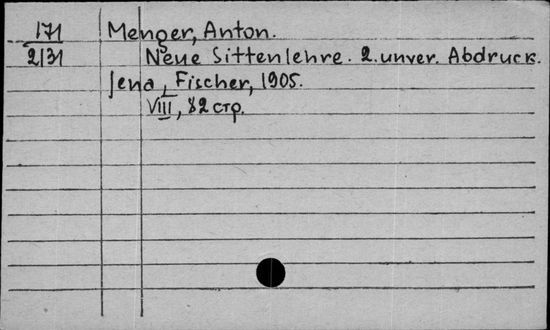 171 Menger, Anton.
2131 Neue Sittenlehre. 2. unver. Abdruck.
Jena, Fischer, 1905.
VIII, 82 стр.